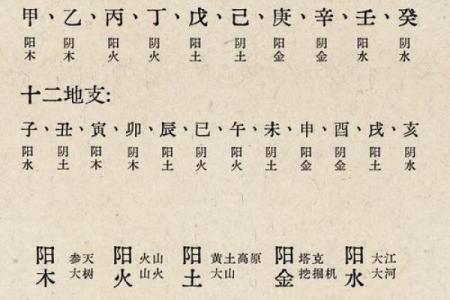 甲、乙、丙、丁、戊、己、庚、辛、壬、癸
阳木 阴木 阳火 阴火 阳土 阴土 阳金 阴金 阳水 阴水
十二地支:
子、丑、寅、卯、辰、巳、午、未、申、酉、戌、亥
阳水 阴土 阳木 阴木 阳土 阴火 阳火 阴土 阳金 阴金 阳土 阴水
阳木 参天大树 阳火 火山火山 阳土 黄土高原大山 阳金 塔克挖掘机 阳水 大江大河